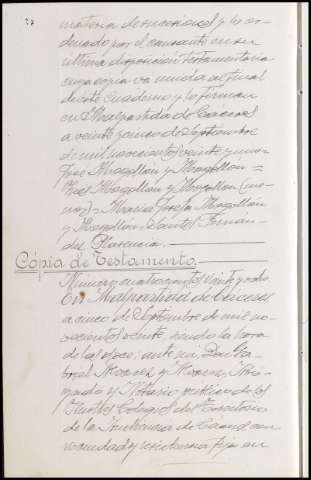 materia de sucesiones y lo or-
denado por el causante en su
última disposición testamentaria
cuya copia va unida al final
de este cuaderno y lo firman
en Malpartida de Cáceres
a veinte y cinco de Septiembre
de mil novecientos veinte y uno=
José Mogollón y Mogollón=
José Mogollón y Mogollón (me-
nor)= María Josefa Mogollón
y Mogollón, Santos Fernán-
dez Plasencia.
Cópia de Testamento.
Número cuatrocientos veinte y ocho
En Malpartida de Cáceres
a cinco de Septiembre de mil no-
vecientos veinte, siendo la hora
de las once: ante mí, Don Ga-
briel Moreno y Abo-
gado y Notario público de los
Ilustre Colegio del Territorio
de la Audiencia de Cáceres con
vecindad y residencia fija en